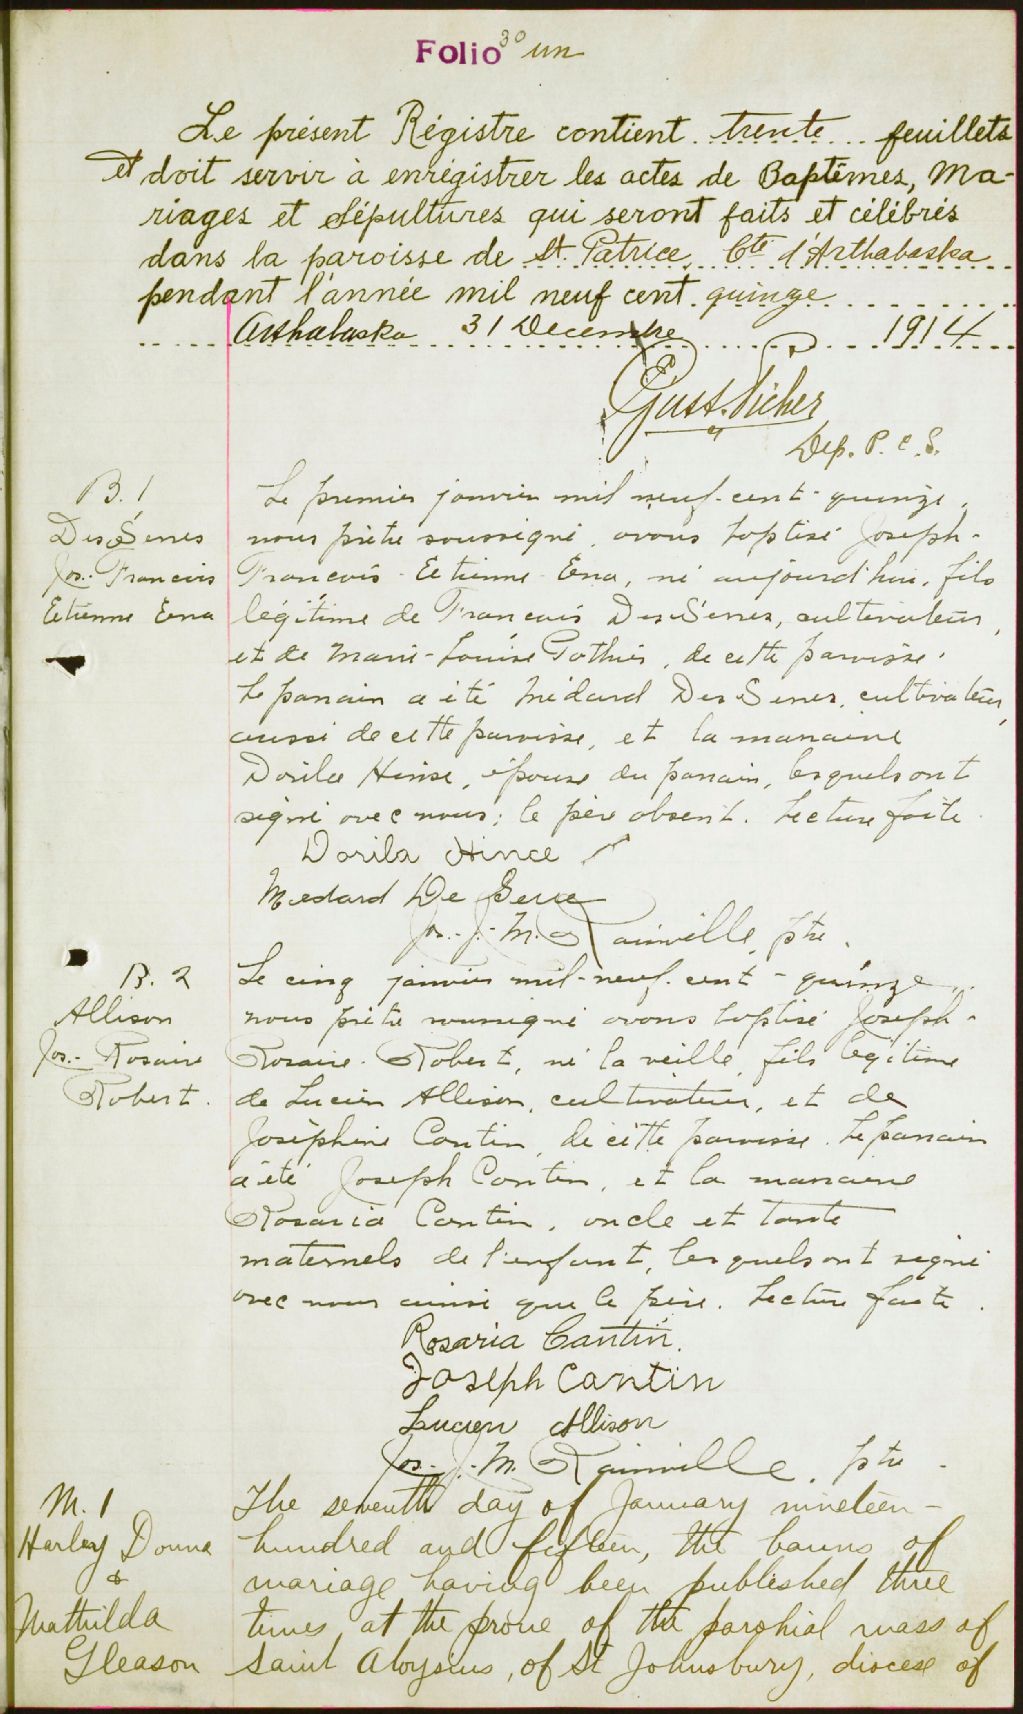 Folio 30 un
Le présent Régistre contient trente feuillets
et doit servir à enrégistrer les actes de Baptêmes, Ma-
riages et Sépultures qui seront faits et célébrés
dans la paroisse de St. Patrice, Cté d'Arthabaska
pendant l'année mil neuf cent quinze
Arthabaska 31 Decembre 1914
Gust. Picher
Dep. P. C. S.
B. 1
DesSerres
Jos. Francois
Etienne Ena
Le premier janvier mil neuf-cent-quinze,
nous prêtre soussigné, avons baptisé Joseph-
Francois-Etienne-Ena, né aujourd'hui, fils
légitime de Francois DesSerres, cultivateur,
et de Marie-Louise Pothier, de cette paroisse.
Le parrain a été Médard DesSerres, cultivateur,
aussi de cette paroisse, et la marraine
Dorila Hinse, épouse du parrain, lesquels ont
signé avec nous; le père absent. Lecture faite.
Dorila Hince
Medard De Serre
Jos.-J.-M. Rainville, ptre.
B. 2
Allison
Jos.- Rosaire
Robert.
Le cinq janvier mil-neuf-cent-quinze,
nous prêtre soussigné avons baptisé Joseph-
Rosaire-Robert, né la veille, fils légitime
de Lucien Allison, cultivateur, et de
Joséphine Cantin, de cette paroisse. Le parrain
a été Joseph Cantin, et la marraine
Rosaria Cantin, oncle et tante
maternels de l'enfant, lesquels ont signé
avec nous ainsi que le père. Lecture faite.
Rosaria Cantin.
Joseph Cantin
Lucien Allison
Jos.-J.-M. Rainville, ptre
M. 1
Harley Donna
&
Mathilda
Gleason
The seventh day of January nineteen-
hundred and fifteen, the banns of
mariage having been published three
times, at the prone of the parohial mass of
Saint Aloysius, of St Johnsbury, diocese of